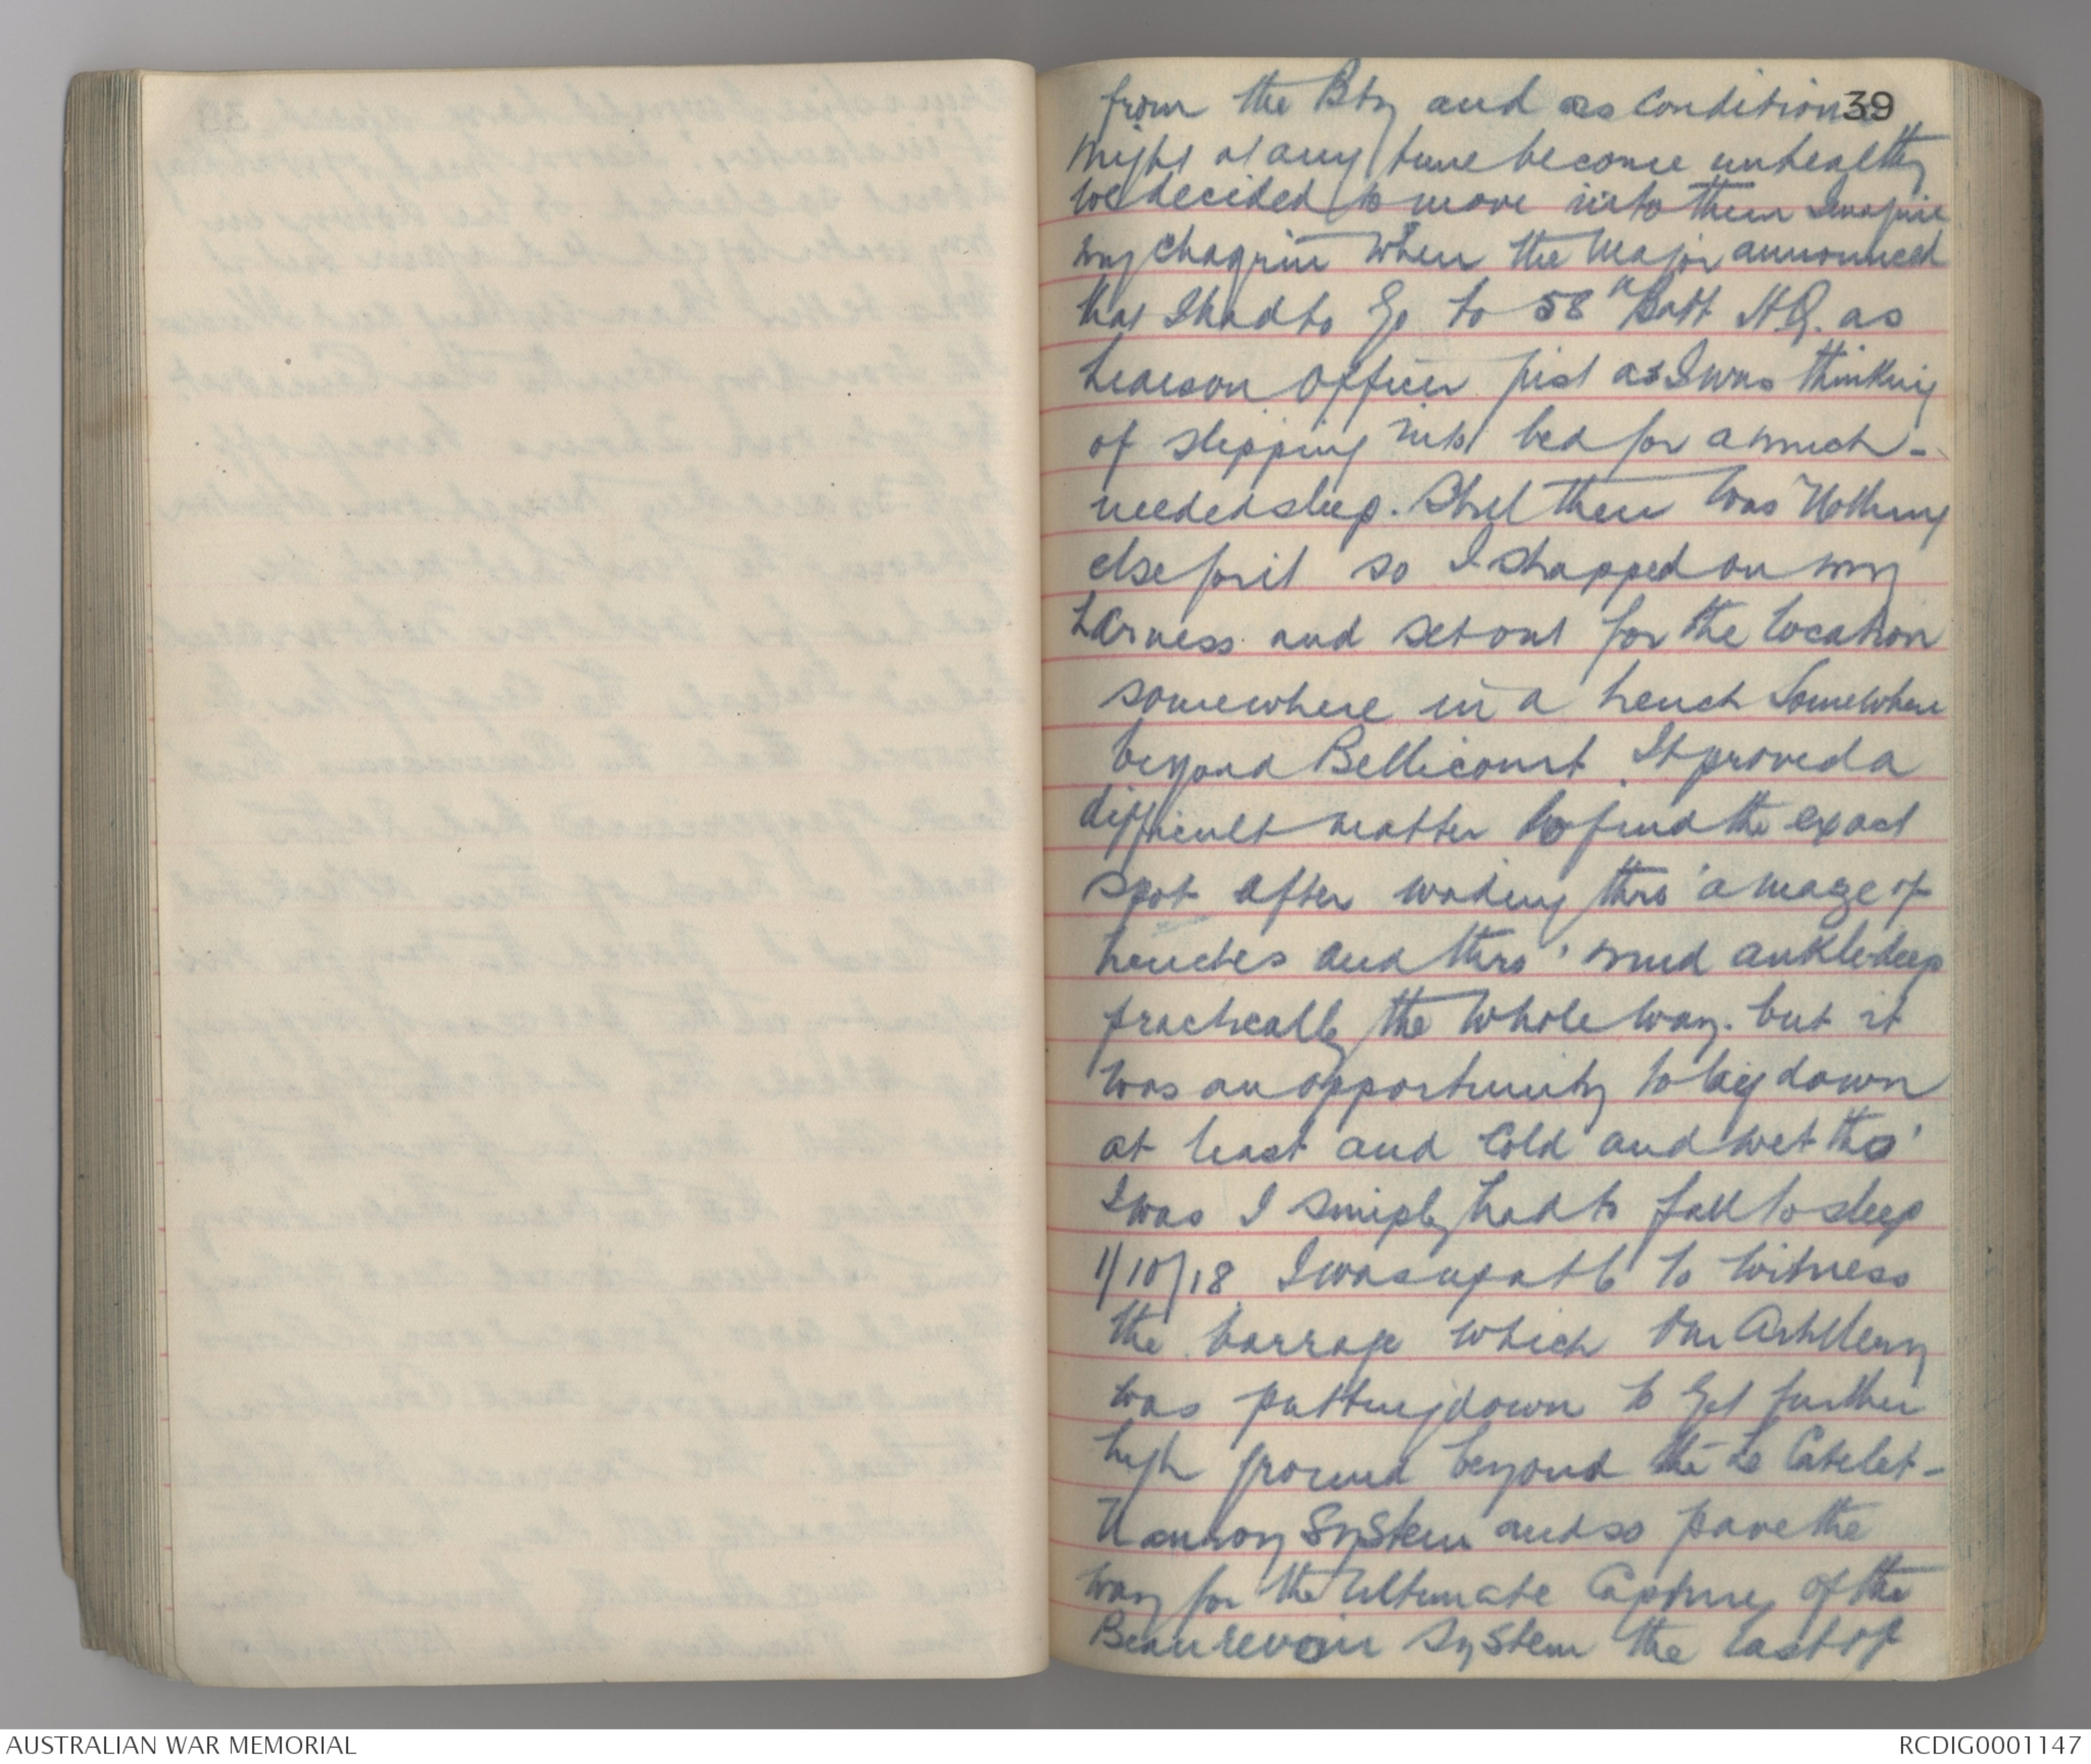 39
from the Bty and as conditions
might at any time become unhealthy
we decided to move into them Imagine
my chagrin when the Major announced
that I had to go to 58th Batt H.Q. as
Liaison Officer just as I was thinking
of slipping into bed for a much-
needed sleep. Still there was nothing
else for it so I strapped on my
harness and set out for the location
somewhere in a trench somewhere
beyond Bellicourt It proved a
difficult matter to find the exact
spot after wading thro' a maze of
trenches and thro' mud ankle deep
practically the whole way. but it
was an opportunity to lay down
at least and cold and wet tho'
I was I simply had to fall to sleep
1/10/18 I was up at 6 to witness
the barrage which our Artillery
was putting down to get further
high ground beyond the Le Catelet-
Nauroy System and so pave the
way for the ultimate capture of the
Beaurevoir System the last of
AUSTRALIAN WAR MEMORIAL
RCDIG0001147